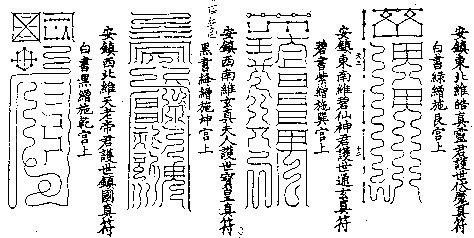 安鎮東北維皓真靈君護世伏魔真符
白書綠繒施艮宮上
安鎮東南維碧仙神君護世通玄真符
碧書紫繒施巽宮上
安鎮西南維玄真夫人護世寶皇真符
黑書絳繒施坤宮上
安鎮西北維天老帝君護世鎮國真符
白書黑繒施乾宮上